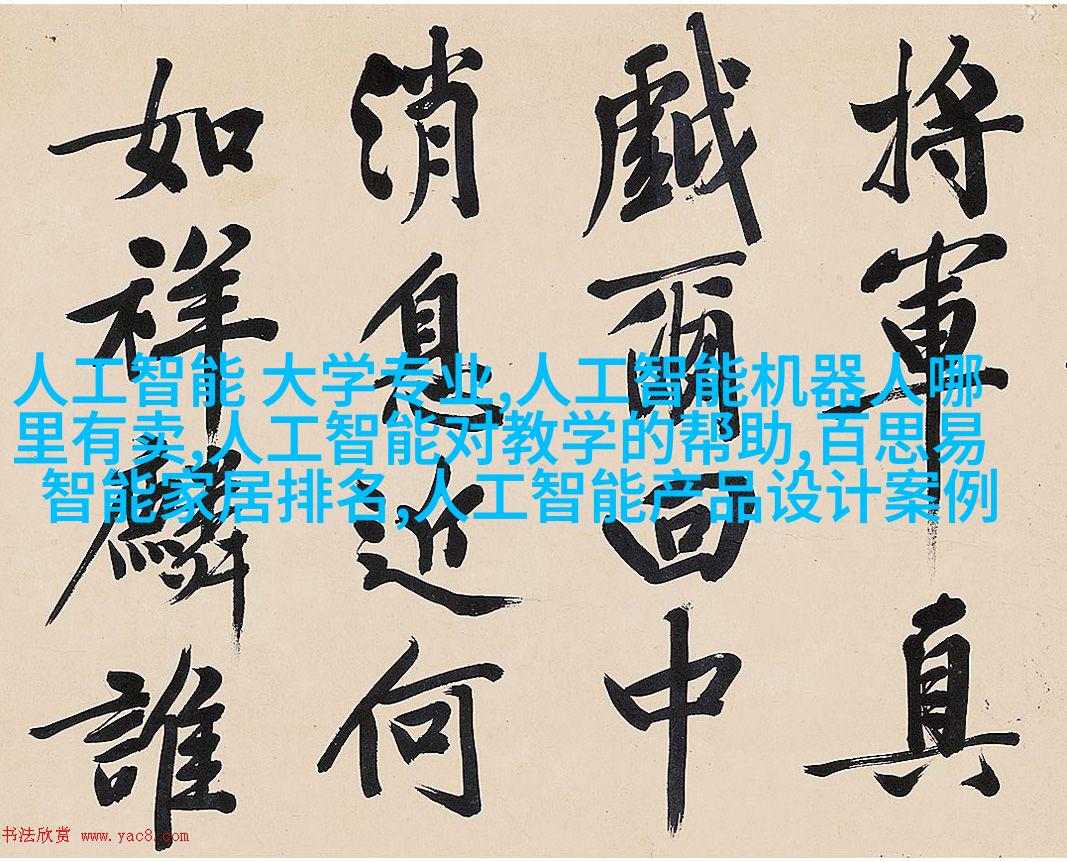 將軍真
戱回中
消息近何
如祥麟誰
人工智能 大学专业,人工智能机器人哪
里有卖,人工智能对教学的帮助,百思易
智能家居排名,人工智能产品设计案例
书法欣赏 www.yac8.com